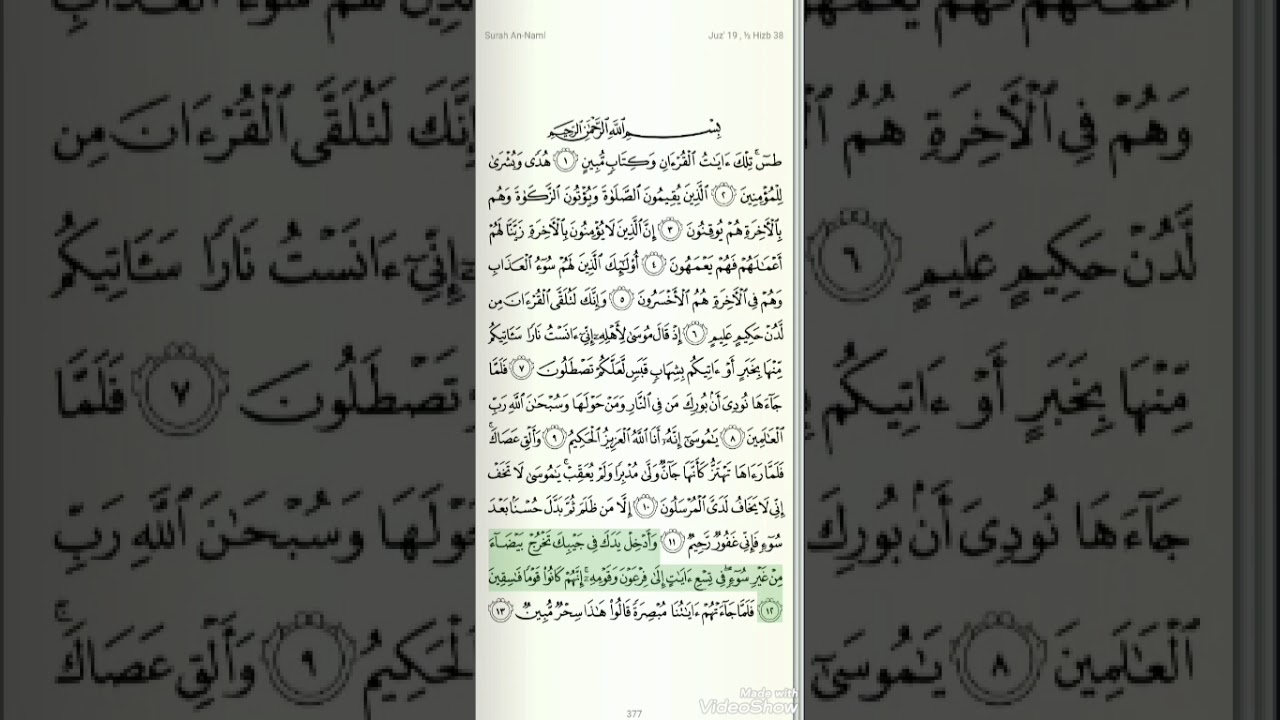 Surah An-Naml
Juz' 19 , ½ Hizb 38
بِسْمِ ٱللَّهِ ٱلرَّحْمَٰنِ ٱلرَّحِيمِ
طسٓ ۚ تِلْكَ ءَايَٰتُ ٱلْقُرْءَانِ وَكِتَابٍ مُّبِينٍ ١ هُدًى وَبُشْرَىٰ
لِلْمُؤْمِنِينَ ٢ ٱلَّذِينَ يُقِيمُونَ ٱلصَّلَوٰةَ وَيُؤْتُونَ ٱلزَّكَوٰةَ وَهُم
بِٱلْءَاخِرَةِ هُمْ يُوقِنُونَ ٣ إِنَّ ٱلَّذِينَ لَا يُؤْمِنُونَ بِٱلْءَاخِرَةِ زَيَّنَّا لَهُمْ
أَعْمَٰلَهُمْ فَهُمْ يَعْمَهُونَ ٤ أُو۟لَٰٓئِكَ ٱلَّذِينَ لَهُمْ سُوٓءُ ٱلْعَذَابِ
وَهُمْ فِى ٱلْءَاخِرَةِ هُمُ ٱلْأَخْسَرُونَ ٥ وَإِنَّكَ لَتُلَقَّى ٱلْقُرْءَانَ مِن
لَّدُنْ حَكِيمٍ عَلِيمٍ ٦ إِذْ قَالَ مُوسَىٰ لِأَهْلِهِۦٓ إِنِّىٓ ءَانَسْتُ نَارًا سَـَٔاتِيكُم
مِّنْهَا بِخَبَرٍ أَوْ ءَاتِيكُم بِشِهَابٍ قَبَسٍ لَّعَلَّكُمْ تَصْطَلُونَ ٧ فَلَمَّا
جَآءَهَا نُودِىَ أَنۢ بُورِكَ مَن فِى ٱلنَّارِ وَمَنْ حَوْلَهَا وَسُبْحَٰنَ ٱللَّهِ رَبِّ
ٱلْعَٰلَمِينَ ٨ يَٰمُوسَىٰٓ إِنَّهُۥٓ أَنَا ٱللَّهُ ٱلْعَزِيزُ ٱلْحَكِيمُ ٩ وَأَلْقِ عَصَاكَ ۚ
فَلَمَّا رَءَاهَا تَهْتَزُّ كَأَنَّهَا جَآنٌّ وَلَّىٰ مُدْبِرًا وَلَمْ يُعَقِّبْ ۚ يَٰمُوسَىٰ لَا تَخَفْ
إِنِّى لَا يَخَافُ لَدَىَّ ٱلْمُرْسَلُونَ ١٠ إِلَّا مَن ظَلَمَ ثُمَّ بَدَّلَ حُسْنًۢا بَعْدَ
سُوٓءٍ فَإِنِّى غَفُورٌ رَّحِيمٌ ١١ وَأَدْخِلْ يَدَكَ فِى جَيْبِكَ تَخْرُجْ بَيْضَآءَ
مِنْ غَيْرِ سُوٓءٍ ۖ فِى تِسْعِ ءَايَٰتٍ إِلَىٰ فِرْعَوْنَ وَقَوْمِهِۦٓ ۚ إِنَّهُمْ كَانُوا۟ قَوْمًا فَٰسِقِينَ
١٢ فَلَمَّا جَآءَتْهُمْ ءَايَٰتُنَا مُبْصِرَةً قَالُوا۟ هَٰذَا سِحْرٌ مُّبِينٌ ١٣
377
Made with
VideoShow